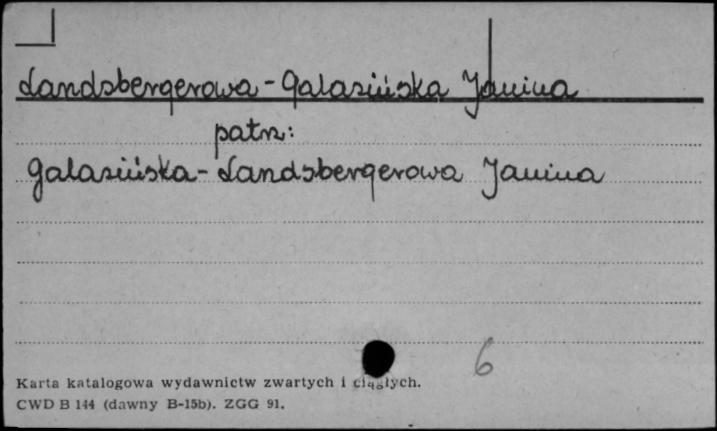 Landsbergerowa - Galasińska Janina
patrz:
Galasińska - Landsbergerowa Janina
6
Karta katalogowa wydawnictw zwartych i ciągłych.
CWD B 144 (dawny B-15b). ZGG 91.